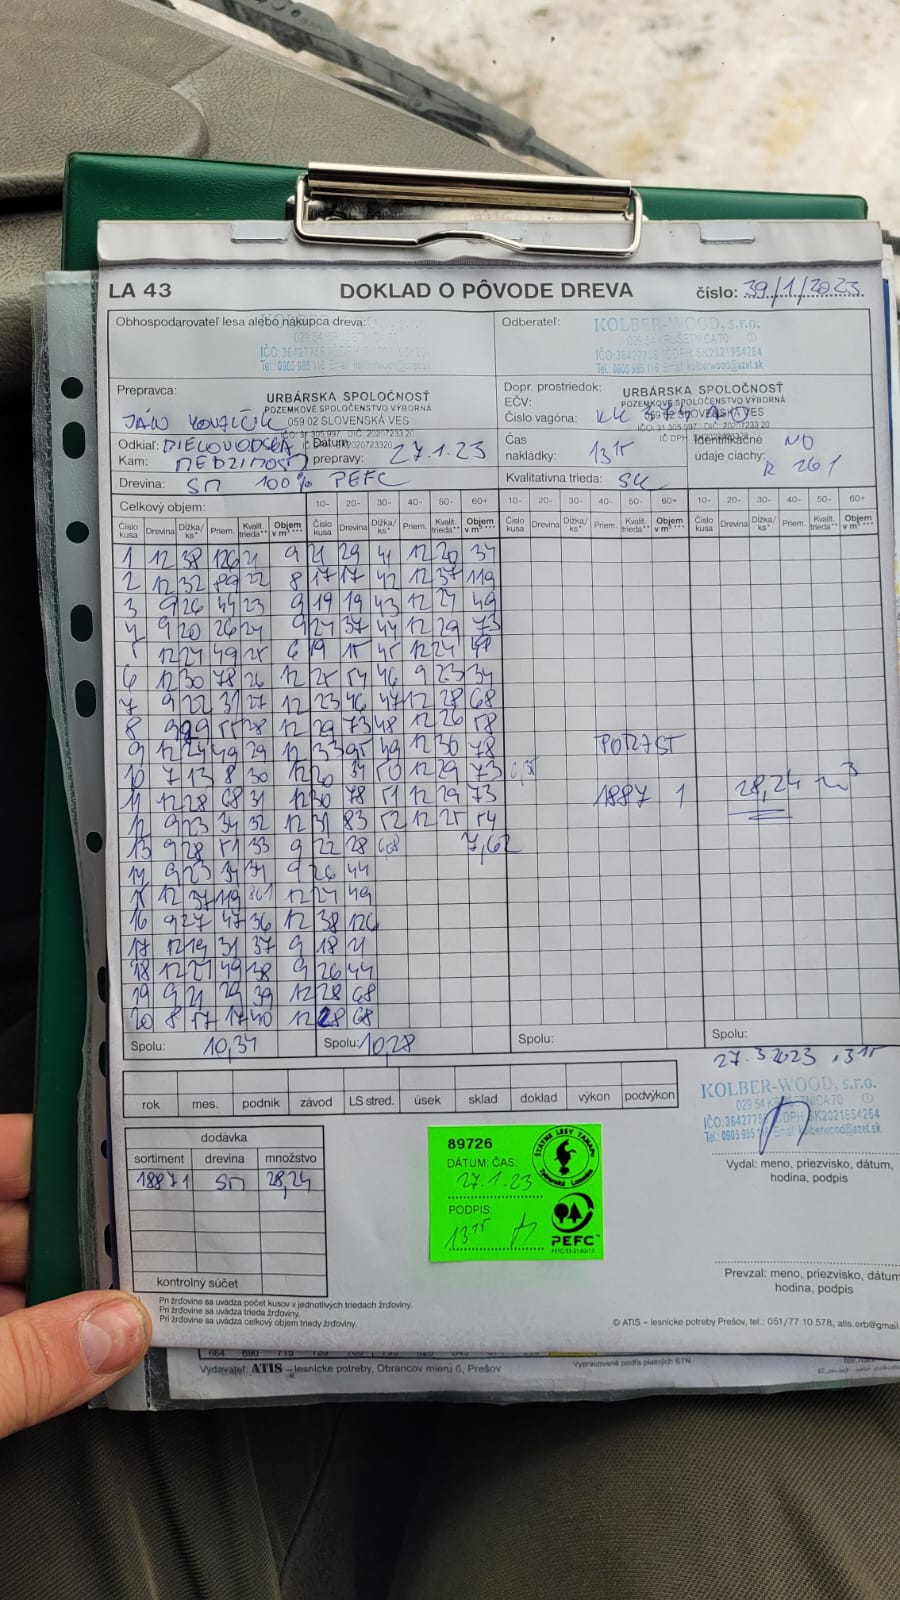 LA 43 DOKLAD O PÔVODE DREVA číslo: 39/1/2023
Obhospodarovateľ lesa alebo nákupca dreva: Odberateľ: KOLBER-WOOD, s.r.o.
029 54 KRUŠETNICA 70
IČO:36427756 IČ DPH: SK2021954264
Tel.: 0905 985 116 Email: kolberwood@azet.sk
Prepravca: JÁN
URBÁRSKA SPOLOČNOSŤ
POZEMKOVÉ SPOLOČENSTVO VÝBORNÁ
059 02 SLOVENSKÁ VES
IČO: 31 305 997 DIČ: 2020723320
Dopr. prostriedok:
EČV:
Číslo vagóna:
URBÁRSKA SPOLOČNOSŤ
POZEMKOVÉ SPOLOČENSTVO VÝBORNÁ
059 02 SLOVENSKÁ VES
Odkiaľ:
Kam:
Dátum prepravy: 27.1.23
Čas nakládky: 13 15
Identifikačné údaje ciachy: NO
R 261
Drevina: SM 100% PEFC Kvalitatívna trieda:
Celkový objem: 10- 20- 30- 40- 50- 60+ 10- 20- 30- 40- 50- 60+ 10- 20- 30- 40- 50- 60+
Číslo kusa Drevina Dĺžka/ks* Priem. Kvalit. trieda** Objem v m³*** Číslo kusa Drevina Dĺžka/ks* Priem. Kvalit. trieda** Objem v m³*** Číslo kusa Drevina Dĺžka/ks* Priem. Kvalit. trieda** Objem v m³*** Číslo kusa Drevina Dĺžka/ks* Priem. Kvalit. trieda** Objem v m³***
1 12 38 126 21 9 21 29 41 12 20 34
2 12 32 89 22 8 17 17 42 12 37 119
3 9 26 44 23 9 19 19 43 12 24 49
4 9 20 26 24 9 24 37 44 12 29 73
5 12 24 49 25 6 19 15 45 12 24 49
6 12 30 78 26 12 25 54 46 9 23 34
7 9 22 31 27 12 23 46 47 12 28 68
8 9 29 55 28 12 29 73 48 12 26 58
9 12 24 49 29 12 33 95 49 12 30 78
PORAST
10 7 13 8 30 12 20 34 50 12 29 73
11 12 28 68 31 12 30 78 51 12 29 73 1887 1 28,24 m³
12 9 23 34 32 12 31 83 52 12 25 54
13 9 28 51 33 9 22 28 7,62
14 9 23 34 34 9 26 44
15 12 37 119 12 24 49
16 9 27 47 36 12 38 126
17 12 19 31 37 9 18 21
18 12 24 49 38 9 26 44
19 9 21 29 39 12 28 68
20 8 17 17 40 12 28 68
Spolu: 10,34 Spolu: 10,28 Spolu: Spolu:
27.3.2023
rok mes. podnik závod LS stred. úsek sklad doklad výkon podvýkon
KOLBER-WOOD, s.r.o.
029 54 KRUŠETNICA 70
IČO:36427756 IČ DPH: SK2021954264
Tel.: 0905 985 116 Email: kolberwood@azet.sk
Vydal: meno, priezvisko, dátum,
hodina, podpis
dodávka
sortiment drevina množstvo
1887 1 SM 28,24
kontrolný súčet
89726
DÁTUM: ČAS:
27.1.23
PODPIS:
13 15
ŠTÁTNE LESY TANAPu
Tatranská Lomnica
PEFC
Prevzal: meno, priezvisko, dátum
hodina, podpis
Pri žrďovine sa uvádza počet kusov v jednotlivých triedach žrďoviny.
Pri žrďovine sa uvádza trieda žrďoviny.
Pri žrďovine sa uvádza celkový objem triedy žrďoviny.
© ATIS – lesnícke potreby Prešov, tel.: 051/77 10 578, atis.erb@gmail.
Vydavateľ: ATIS – lesnícke potreby, Obrancov mieru 6, Prešov Vypracované podľa platných STN